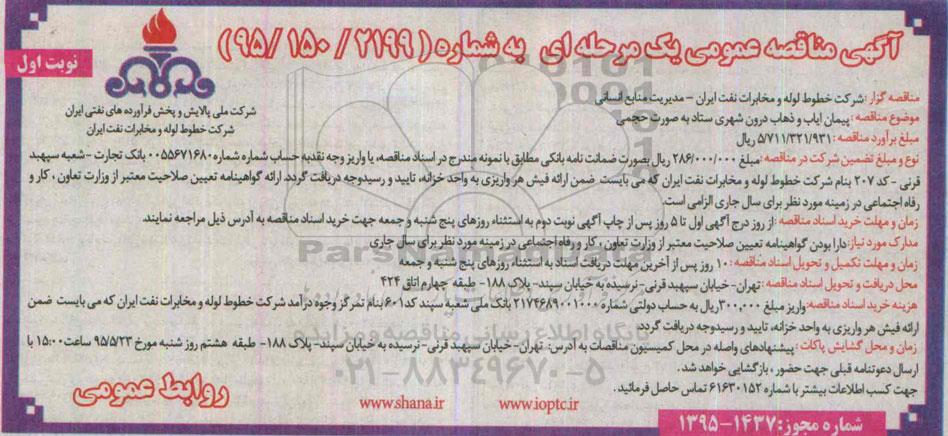 آگهی مناقصه عمومی یک مرحله ای به شماره ( ۲۱۹۹ / ۱۵۰ / ۹۵)
نوبت اول
شرکت ملی پالایش و پخش فرآورده های نفتی ایران
شرکت خطوط لوله و مخابرات نفت ایران
مناقصه گزار : شرکت خطوط لوله و مخابرات نفت ایران - مدیریت منابع انسانی
موضوع مناقصه : پیمان ایاب و ذهاب درون شهری ستاد به صورت حجمی
مبلغ برآورد مناقصه : ۵/۷۱۱/۳۲۱/۹۳۱ ریال
نوع و مبلغ تضمین شرکت در مناقصه: مبلغ ۲۸۶/۰۰۰/۰۰۰ ریال بصورت ضمانت نامه بانکی مطابق با نمونه مندرج در اسناد مناقصه، یا واریز وجه نقد به حساب شماره شماره ۰۰۵۵۶۷۱۶۸۰ بانک تجارت - شعبه سپهبد
قرنی - کد ۲۰۷ بنام شرکت خطوط لوله و مخابرات نفت ایران که می بایست ضمن ارائه فیش هر واریزی به واحد خزانه، تایید و رسیدوجه دریافت گردد. ارائه گواهینامه تعیین صلاحیت معتبر از وزارت تعاون ، کار و
رفاه اجتماعی در زمینه مورد نظر برای سال جاری الزامی است.
زمان و مهلت خرید اسناد مناقصه : از روز درج آگهی اول تا ۵ روز پس از چاپ آگهی نوبت دوم به استثناء روزهای پنج شنبه و جمعه جهت خرید اسناد مناقصه به آدرس ذیل مراجعه نمایند.
مدارک مورد نیاز: دارا بودن گواهینامه تعیین صلاحیت معتبر از وزارت تعاون ، کار و رفاه اجتماعی در زمینه مورد نظر برای سال جاری
زمان و مهلت تکمیل و تحویل اسناد مناقصه : ۱۰ روز پس از آخرین مهلت دریافت اسناد به استثناء روزهای پنج شنبه و جمعه
محل دریافت و تحویل اسناد مناقصه: تهران- خیابان سپهبد قرنی- نرسیده به خیابان سپند- پلاک ۱۸۸- طبقه چهارم اتاق ۴۲۴
هزینه خرید اسناد مناقصه: واریز مبلغ ۳۰۰,۰۰۰ ریال به حساب دولتی شماره ۲۱۷۴۶۸۹۰۰۱۰۰۰ بانک ملی شعبه سپند کد ۶۰۱ بنام تمرکز وجوه درآمد شرکت خطوط لوله و مخابرات نفت ایران که می بایست ضمن
ارائه فیش هر واریزی به واحد خزانه، تایید و رسیدوجه دریافت گردد
زمان و محل گشایش پاکات : پیشنهادهای واصله در محل کمیسیون مناقصات به آدرس: تهران- خیابان سپهبد قرنی- نرسیده به خیابان سپند- پلاک ۱۸۸- طبقه هشتم روز شنبه مورخ ۹۵/۵/۲۳ ساعت ۱۵:۰۰ با
ارسال دعوتنامه قبلی جهت حضور ، بازگشایی خواهد شد.
جهت کسب اطلاعات بیشتر با شماره ۶۱۶۳۰۱۵۲ تماس حاصل فرمائید.
روابط عمومی
www.shana.ir www.ioptc.ir
شماره مجوز: ۱۴۳۷-۱۳۹۵
ParsNamadData
پایگاه اطلاع رسانی مناقصه و مزایده
۰۲۱-۸۸۳۴۹۶۷۰-۵